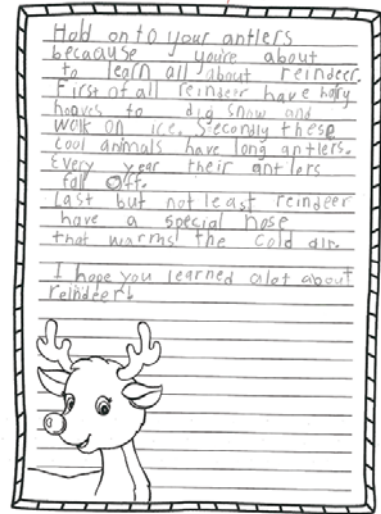 Hold onto your antlers
becaause you're about
to learn all about reindeer.
First of all reindeer have hairy
hooves to dig snow and
walk on ice. Secondly these
cool animals have long antlers.
Every year their antlers
fall off.
Last but not least reindeer
have a special nose
that warms the cold air.
I hope you learned alot about
reindeer!